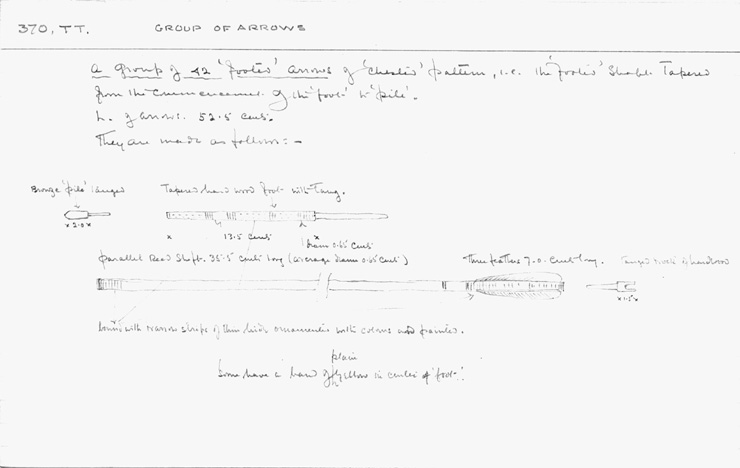 370, TT. GROUP OF ARROWS
A group of 42 'footed' arrows of 'Chested' pattern, i.e. the 'footed' shaft. Tapered
from the commencement of the 'foot' to 'pile'.
L. of arrows. 52.5 cent.
They are made as follows:-
Bronze 'pile' tanged Tapered hard wood foot with Tang.
x 2.0 x x 13.5 cents x
diam 0.65 cents
parallel Reed Shaft. 35.5 cents long (average diam 0.65 cents) Three feathers 7.0. cents long. Tanged nock of hardwood
x 1.5 x
bound with narrow strips of thin bark ornamented with colours and painted.
plain
Some have a band of yellow in center of 'foot'.